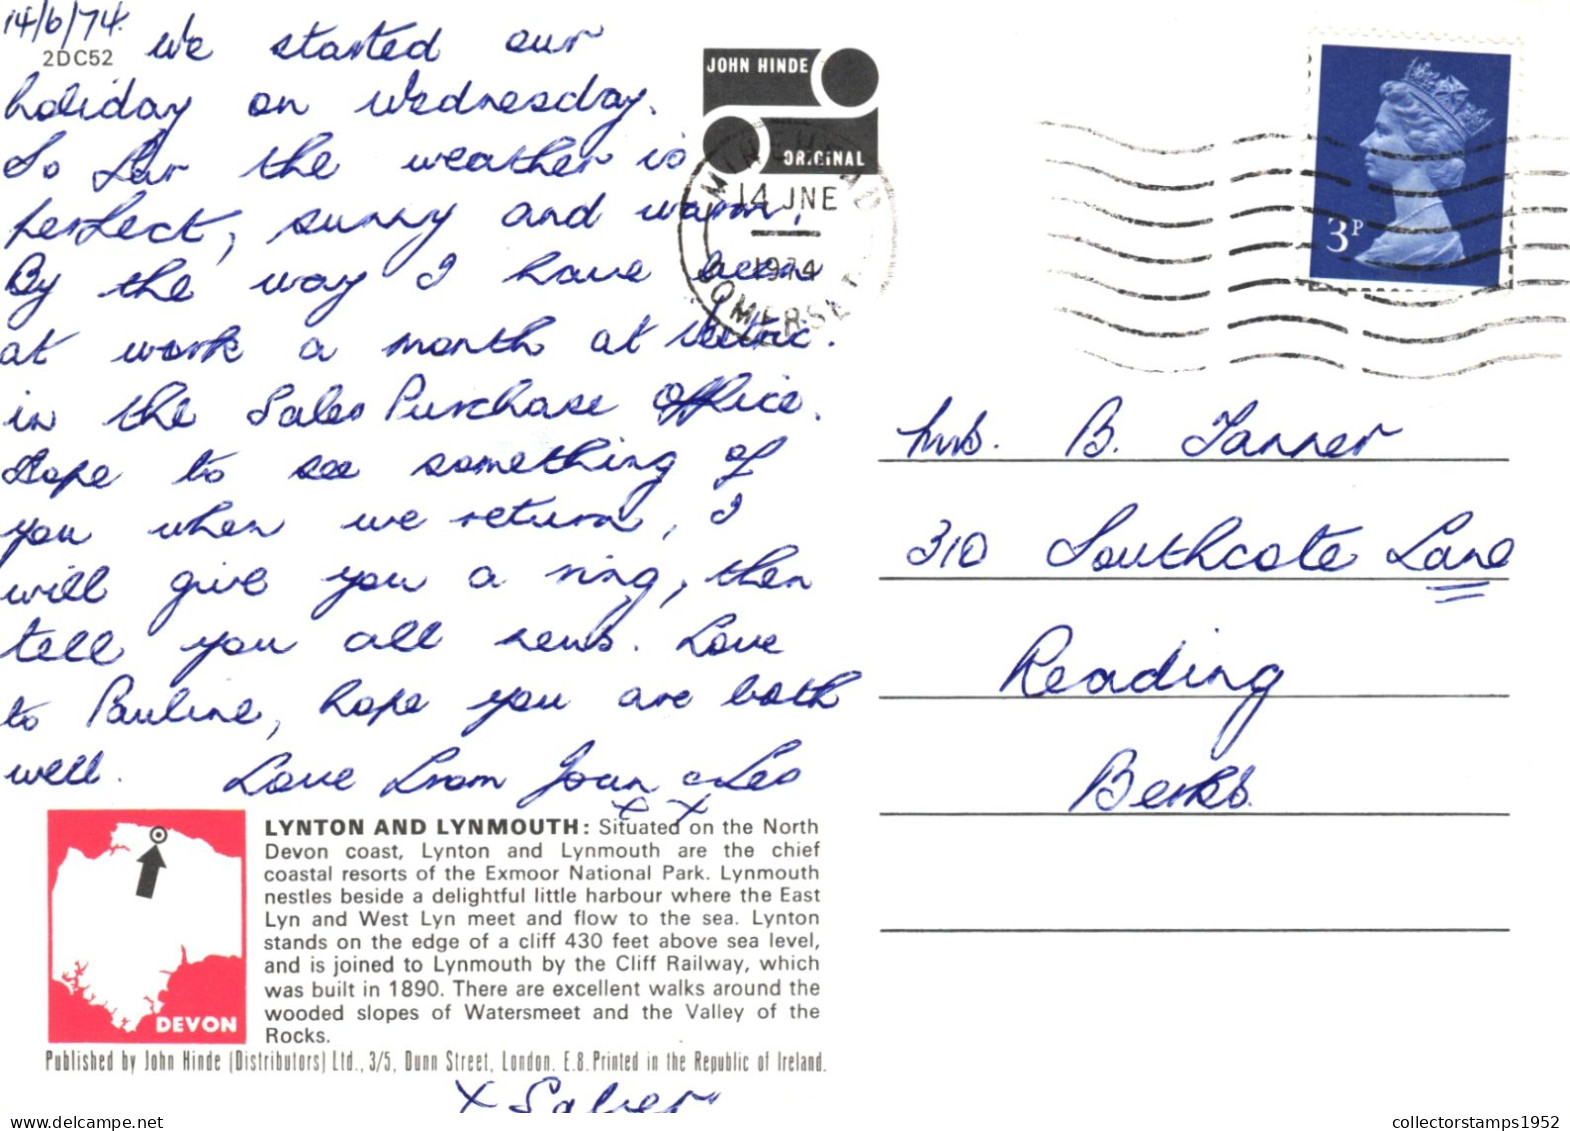 14/6/74.
2DC52
We started our
holiday on Wednesday.
So far the weather is
perfect, sunny and warm.
By the way I have been
at work a month at
in the Sales Purchase Office.
Hope to see something of
you when we return, I
will give you a ring, then
tell you all news. Love
to Pauline, hope you are both
well. Love from Joan & Les
x x
JOHN HINDE
ORIGINAL
MINEHEAD
14 JNE
1974
SOMERSET
3P
Mrs. B. Tanner
310 Southcote Lane
Reading
Berks.
LYNTON AND LYNMOUTH: Situated on the North
Devon coast, Lynton and Lynmouth are the chief
coastal resorts of the Exmoor National Park. Lynmouth
nestles beside a delightful little harbour where the East
Lyn and West Lyn meet and flow to the sea. Lynton
stands on the edge of a cliff 430 feet above sea level,
and is joined to Lynmouth by the Cliff Railway, which
was built in 1890. There are excellent walks around the
wooded slopes of Watersmeet and the Valley of the
Rocks.
DEVON
Published by John Hinde (Distributors) Ltd., 3/5, Dunn Street, London. E.8. Printed in the Republic of Ireland.
x
collectorstamps1952
delcampe.net